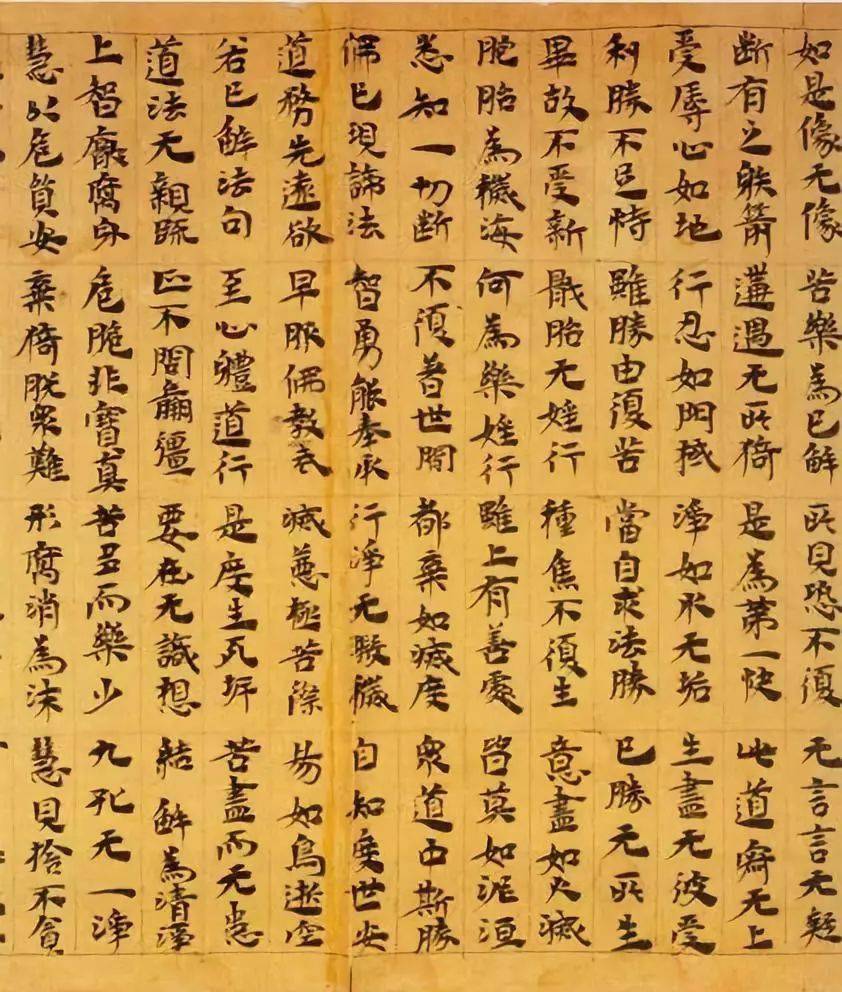 如是像无像 苦樂為已解 所見恐不復 无言言无疑
断有之躲箭 遘遇无所猗 是為第一快 此道寂无上
受辱心如地 行忍如門棫 淨如水无垢 生盡无彼受
利勝不足恃 雖勝由復苦 當自求法勝 已勝无所生
畢故不受新 厭胎无婬行 種焦不復生 意盡如火滅
胞胎為穢海 何為樂婬行 雖上有善處 皆莫如泥洹
悉知一切断 不復著世間 都棄如滅度 眾道中斯勝
佛已現諦法 智勇能奉承 行淨无瑕穢 自知度世安
道務先遠欲 早服佛教戒 滅惡極苦際 易如鳥逝空
若已解法句 至心體道行 是度生死岸 苦盡而无患
道法无親踈 正不問羸彊 要在无識想 結解為清淨
上智厭腐身 危脆非實真 苦多而樂少 九孔无一淨
慧以危貿安 棄猗脫眾難 形腐消為沫 慧見捨不貪